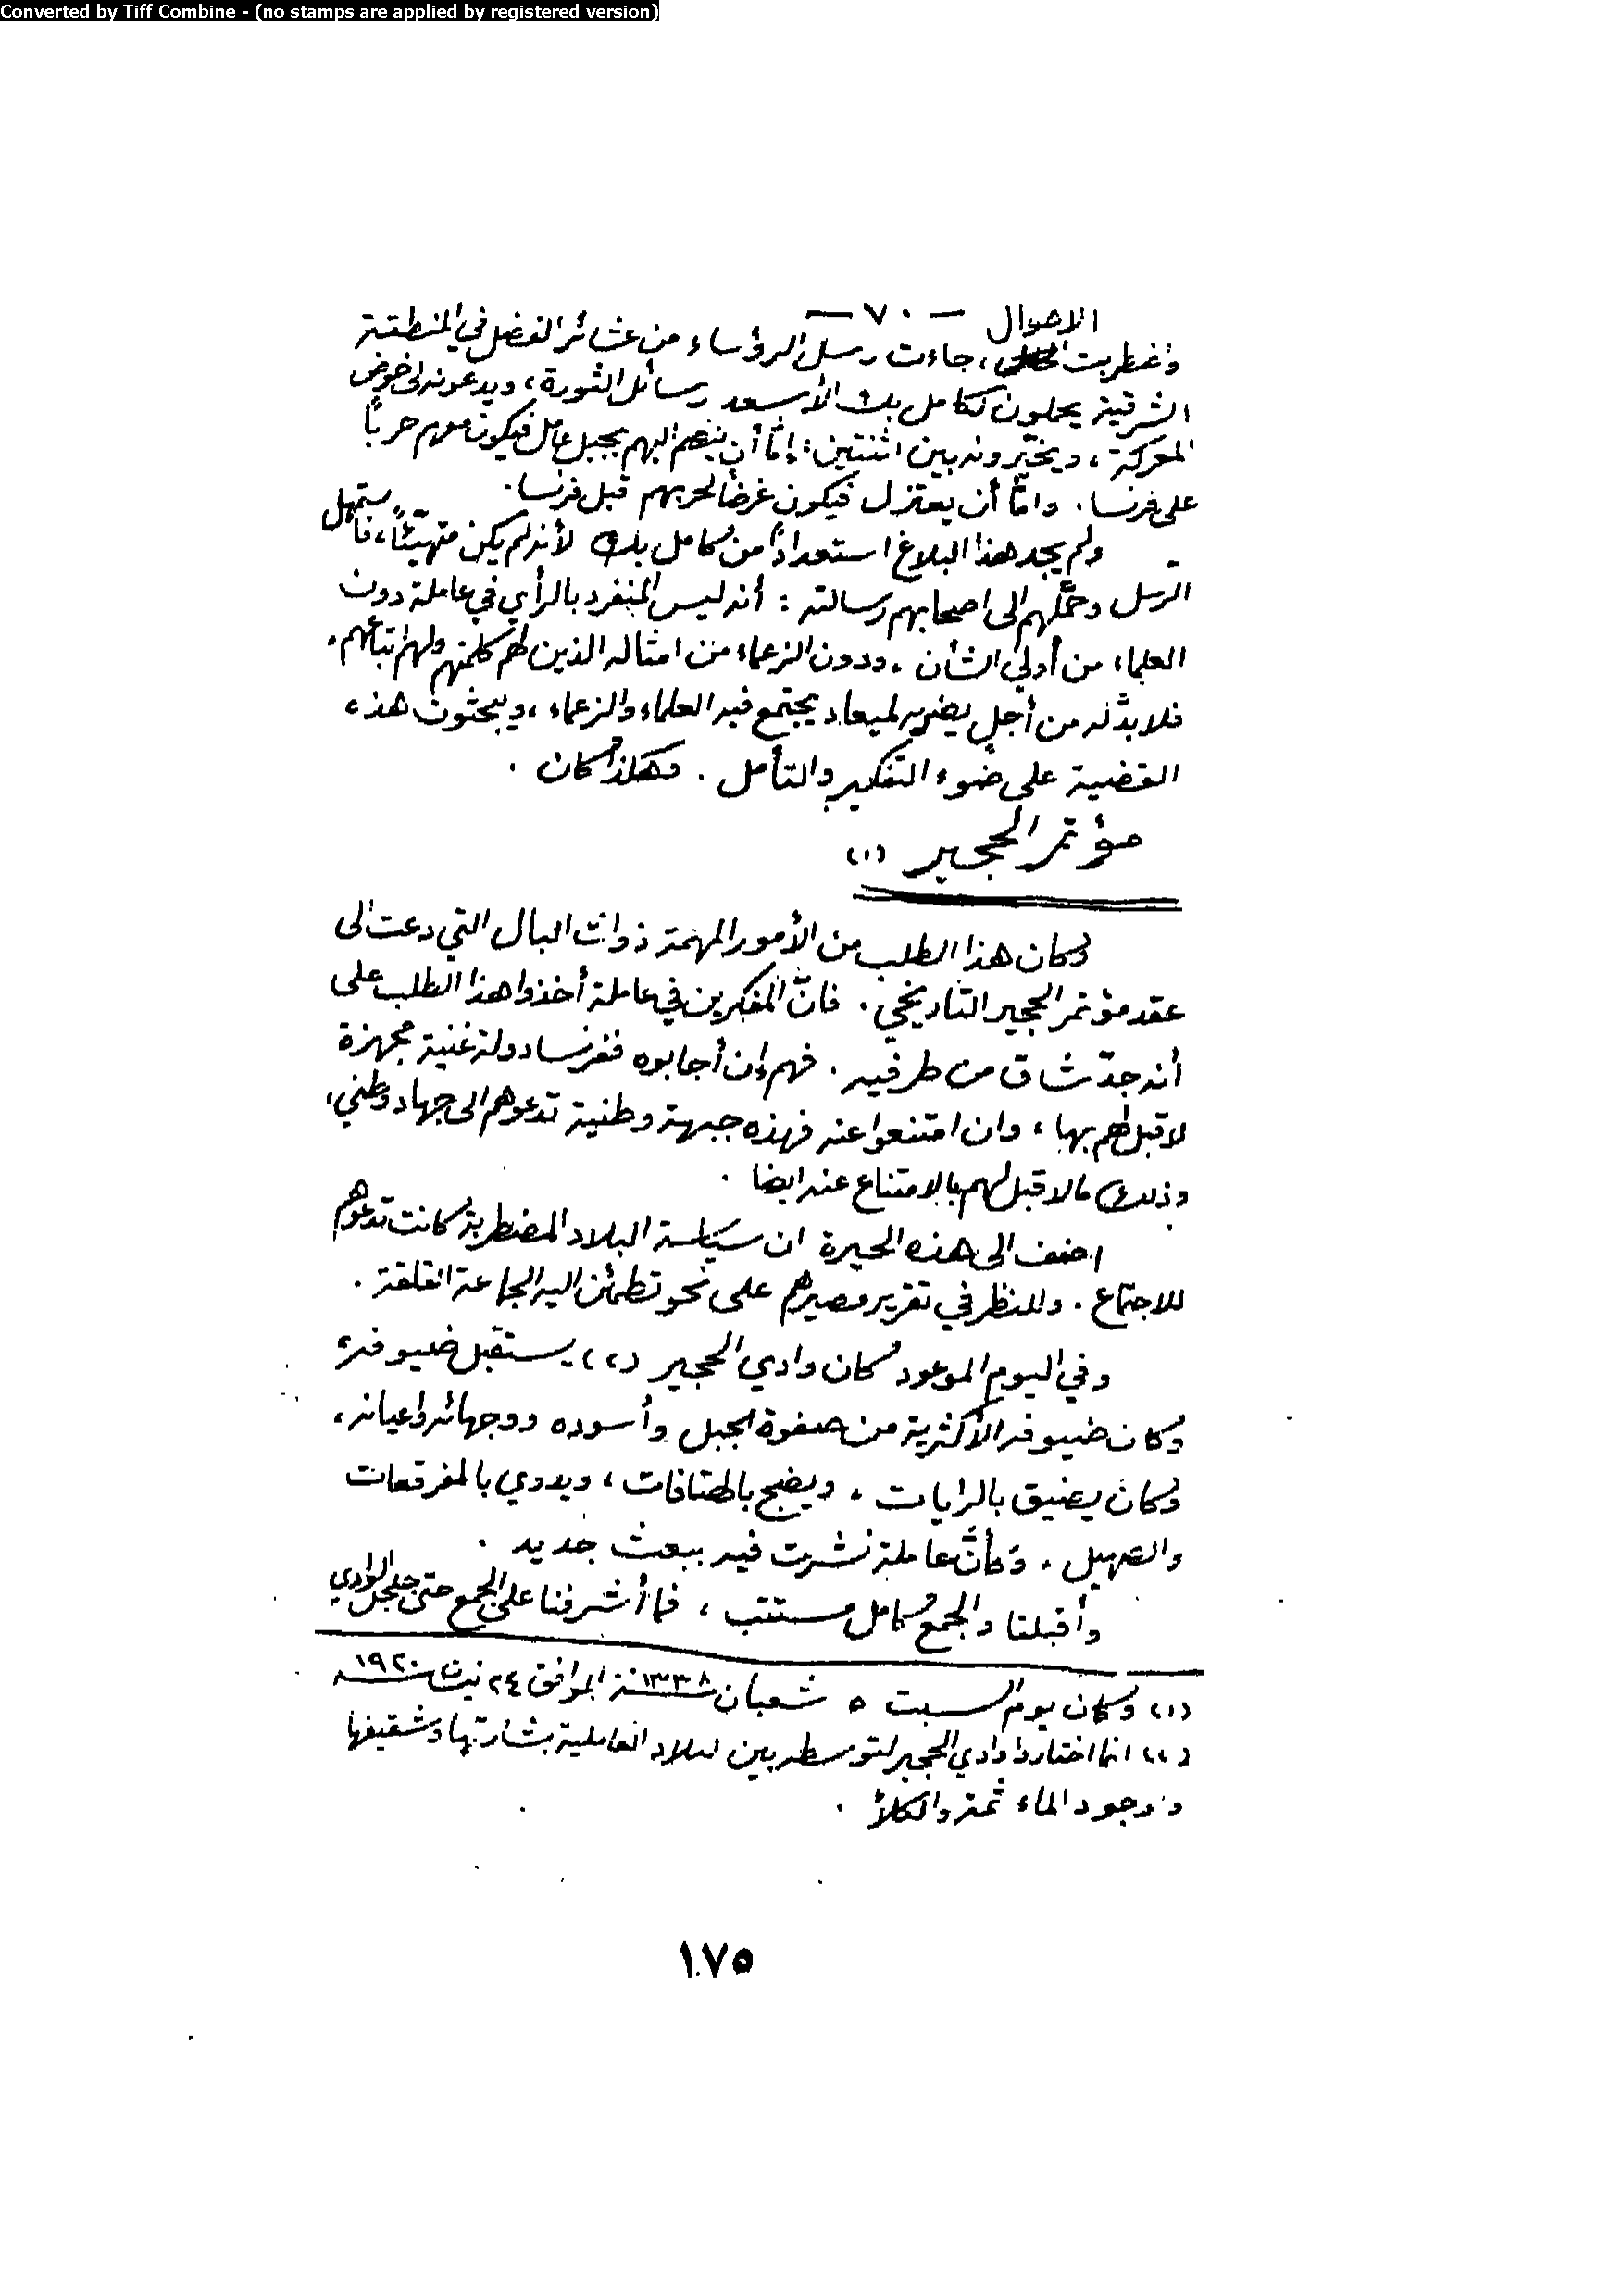 Converted by Tiff Combine - (no stamps are applied by registered version)
— ٧٠ —
الاحوال
واضطربت ، جاءت رسل الرؤساء من عشائر الفضل في المنطقة
الشرقية يحملون لكامل بك الأسعد رسائل الثورة ، ويدعونه الى خوض
المعركة ، ويخيّرونه بين اثنتين : إمّا أن ينضم اليهم بجبل عامل فيكون معهم حرباً
على فرنسا . وامّا أن يعتزل فيكون غرضاً لحربهم قبل فرنسا .
ولم يجد هذا البلاغ استعداداً من كامل بك لأنه لم يكن متهيّئاً ، فاستمهل
الرسل وحمّلهم الى اصحابهم رسالته : أنه ليس المنفرد بالرأي في عاملة دون
العلماء من أولي الشأن . ودون الزعماء من امثاله الذين لهم كلمتهم ولهم اتباعهم .
فلا بدّ له من أجل يضربه لميعاد يجتمع فيه العلماء والزعماء ، ويبحثون هذه
القضية على ضوء التفكير والتأمل . وهكذا كان .
مؤتمر الحجير (١)
وكان هذا الطلب من الأمور المهمة ذوات البال التي دعت الى
عقد مؤتمر الحجير التاريخي . فانّ المفكرين في عاملة أخذوا هذا الطلب على
أنه جدّ شاق من طرفيه . فهم إن أجابوه ففرنسا دولة غنية مجهزة
لا قبل لهم بها ، وان امتنعوا عنه فهذه جبهة وطنية تدعوهم الى جهاد وطني ،
وذلك مالا قبل لهم بالامتناع عنه ايضا .
اضف الى هذه الحيرة ان سياسة البلاد المضطربة كانت تدعوهم
للاجتماع . وللنظر في تقرير مصيرهم على نحو تطمئن اليه الجماعة القلقة .
وفي اليوم الموعود كان وادي الحجير (٢) يستقبل ضيوفه
وكان ضيوفه الأكثرية من صفوة الجبل وأسوده ووجهائه واعيانه ،
وكان يضيق بالرايات ، ويضج بالهتافات ، ويدوي بالمفرقعات
والصهيل . وكأنّ عاملة نشرت فيه ببعث جديد .
وأقبلنا والجمع كامل مستتب ، فما أشرفنا على الجمع حتى جلجل الوادي
(١) وكان يوم السبت ٥ شعبان سنة ١٣٣٨ الموافق ٢٤ نيسان سنة ١٩٢٠
(٢) انما اختاروا وادي الحجير لتوسطه بين البلاد العاملية بشارتها وشقيفها
ووجود الماء ثمة والكلأ .
١٧٥